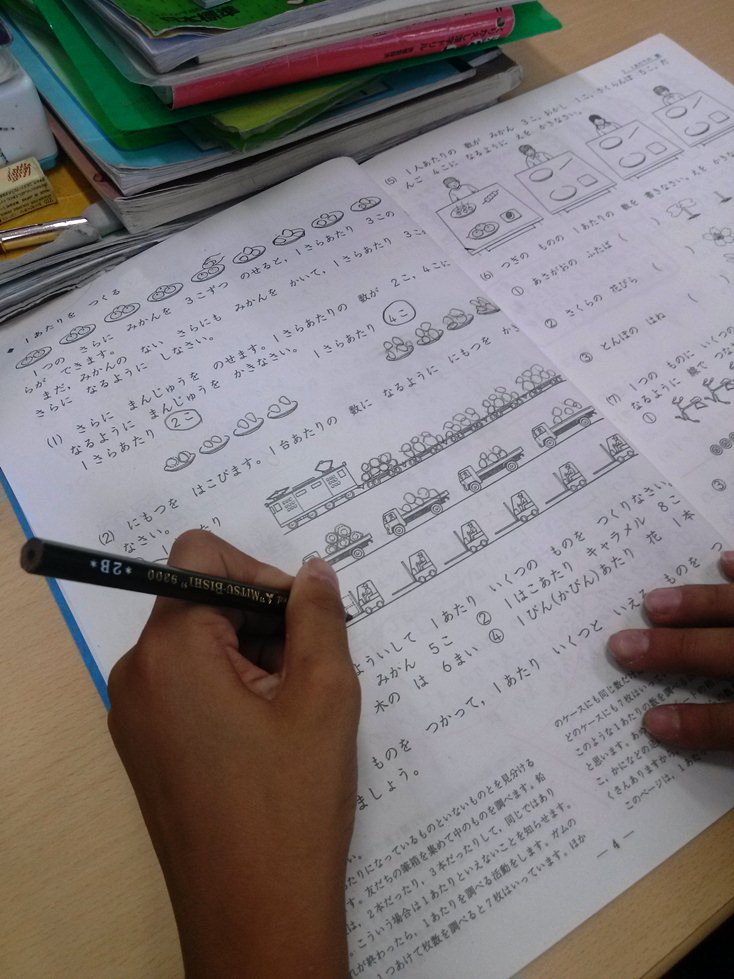 ◆ 1あたりを つくる
1つの さらに みかんを 3こずつ のせると，1さらあたり 3この
らが できます。
まだ，みかんの ない さらにも みかんを かいて，1さらあたり 3こ
さらに なるように しなさい。
(1) さらに まんじゅうを のせます。1さらあたりの 数が 2こ，4こに
なるように まんじゅうを かきなさい。
1さらあたり 2こ
1さらあたり 4こ
(2) にもつを はこびます。1台あたりの 数に なるように にもつを かき
なさい。
1 あたり
よういして 1あたり いくつの ものを つくりなさい。
みかん 5こ ② 1はこあたり キャラメル 8こ
木の は 6まい ④ 1びん(かびん)あたり 花 1本
ものを つかって，1あたり いくつと いえる ものを つ
ましょう。
たりになっているものといないものとを見分ける
す。友だちの筆箱を集めて中のものを調べます。鉛
は，2本だったり，3本だったりして，同じではあり
。こういう場合は1あたりといえないことを知らせます。
れが終わったら，1あたりを調べる活動をします。ガムの
1つあけて枚数を調べると7枚はいっています。ほか
(5) 1人あたりの 数が みかん 3こ，おかし 1こ，さくらんぼ 5こ，だ
んご 4こに なるように えを かきなさい。
(6) つぎの ものの 1あたりの 数を 書きなさい。えを かきな
① あさがおの ふたば ( )
② さくらの 花びら ( )
③ とんぼの はね (
(7) 1つの ものに いくつの
なるように 線で つな
①
③
のケースにも同じ数だ
どのケースにも7枚はい
このような1あたりの数を調べ
と思います。あ
こ，かになどの足
くさんありますか
このページは，1あ
— 4 —
*2B* 9800 "MITSU-BISHI"